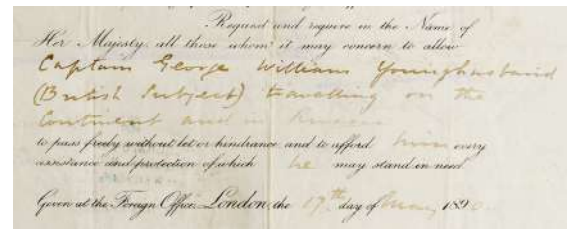 Request and require in the Name of
Her Majesty, all those whom it may concern to allow
Captain George William Younghusband
(British Subject) travelling on the
Continent and in Russia
to pass freely without let or hindrance and to afford him every
assistance and protection of which he may stand in need
Given at the Foreign Office, London, the 17th day of May 1890